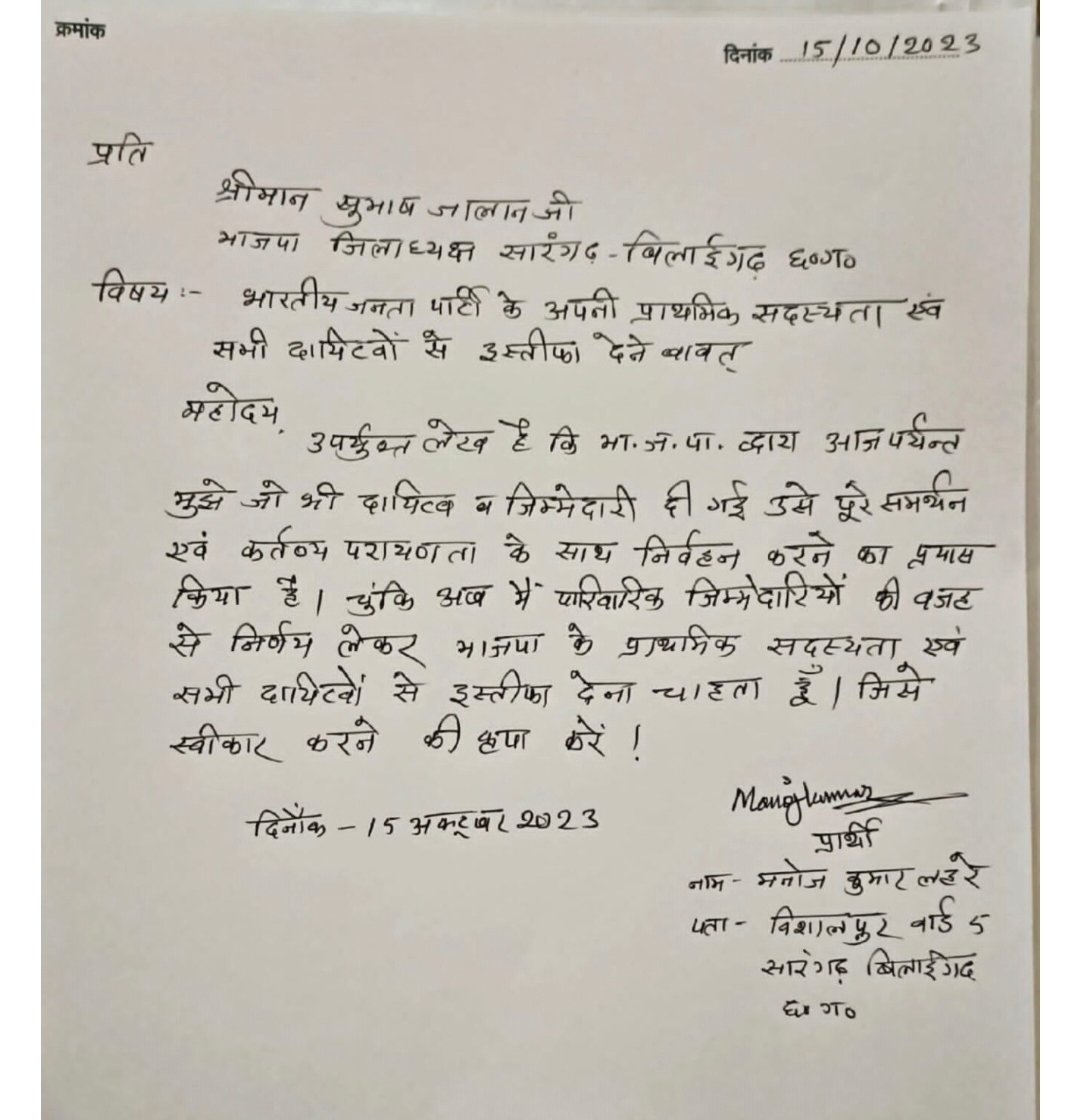 क्रमांक
दिनांक 15/10/2023
प्रति
श्रीमान सुभाष जालान जी
भाजपा जिलाध्यक्ष सारंगढ़-बिलाईगढ़ छ०ग०
विषय :- भारतीय जनता पार्टी के अपनी प्राथमिक सदस्यता एवं
सभी दायित्वों से इस्तीफा देने बावत्
महोदय,
उपर्युक्त लेख है कि भा.ज.पा. द्वारा आजपर्यन्त
मुझे जो भी दायित्व व जिम्मेदारी दी गई उसे पूरे समर्थन
एवं कर्तव्य परायणता के साथ निर्वहन करने का प्रयास
किया है। चुंकि अब मैं पारिवारिक जिम्मेदारियों की वजह
से निर्णय लेकर भाजपा के प्राथमिक सदस्यता एवं
सभी दायित्वों से इस्तीफा देना चाहता हूँ। जिसे
स्वीकार करने की कृपा करें !
दिनाँक - 15 अक्टूबर 2023
Manojkumar
प्रार्थी
नाम - मनोज कुमार लहरे
पता - विशालपुर वार्ड 5
सारंगढ़ बिलाईगढ़
छ० ग०